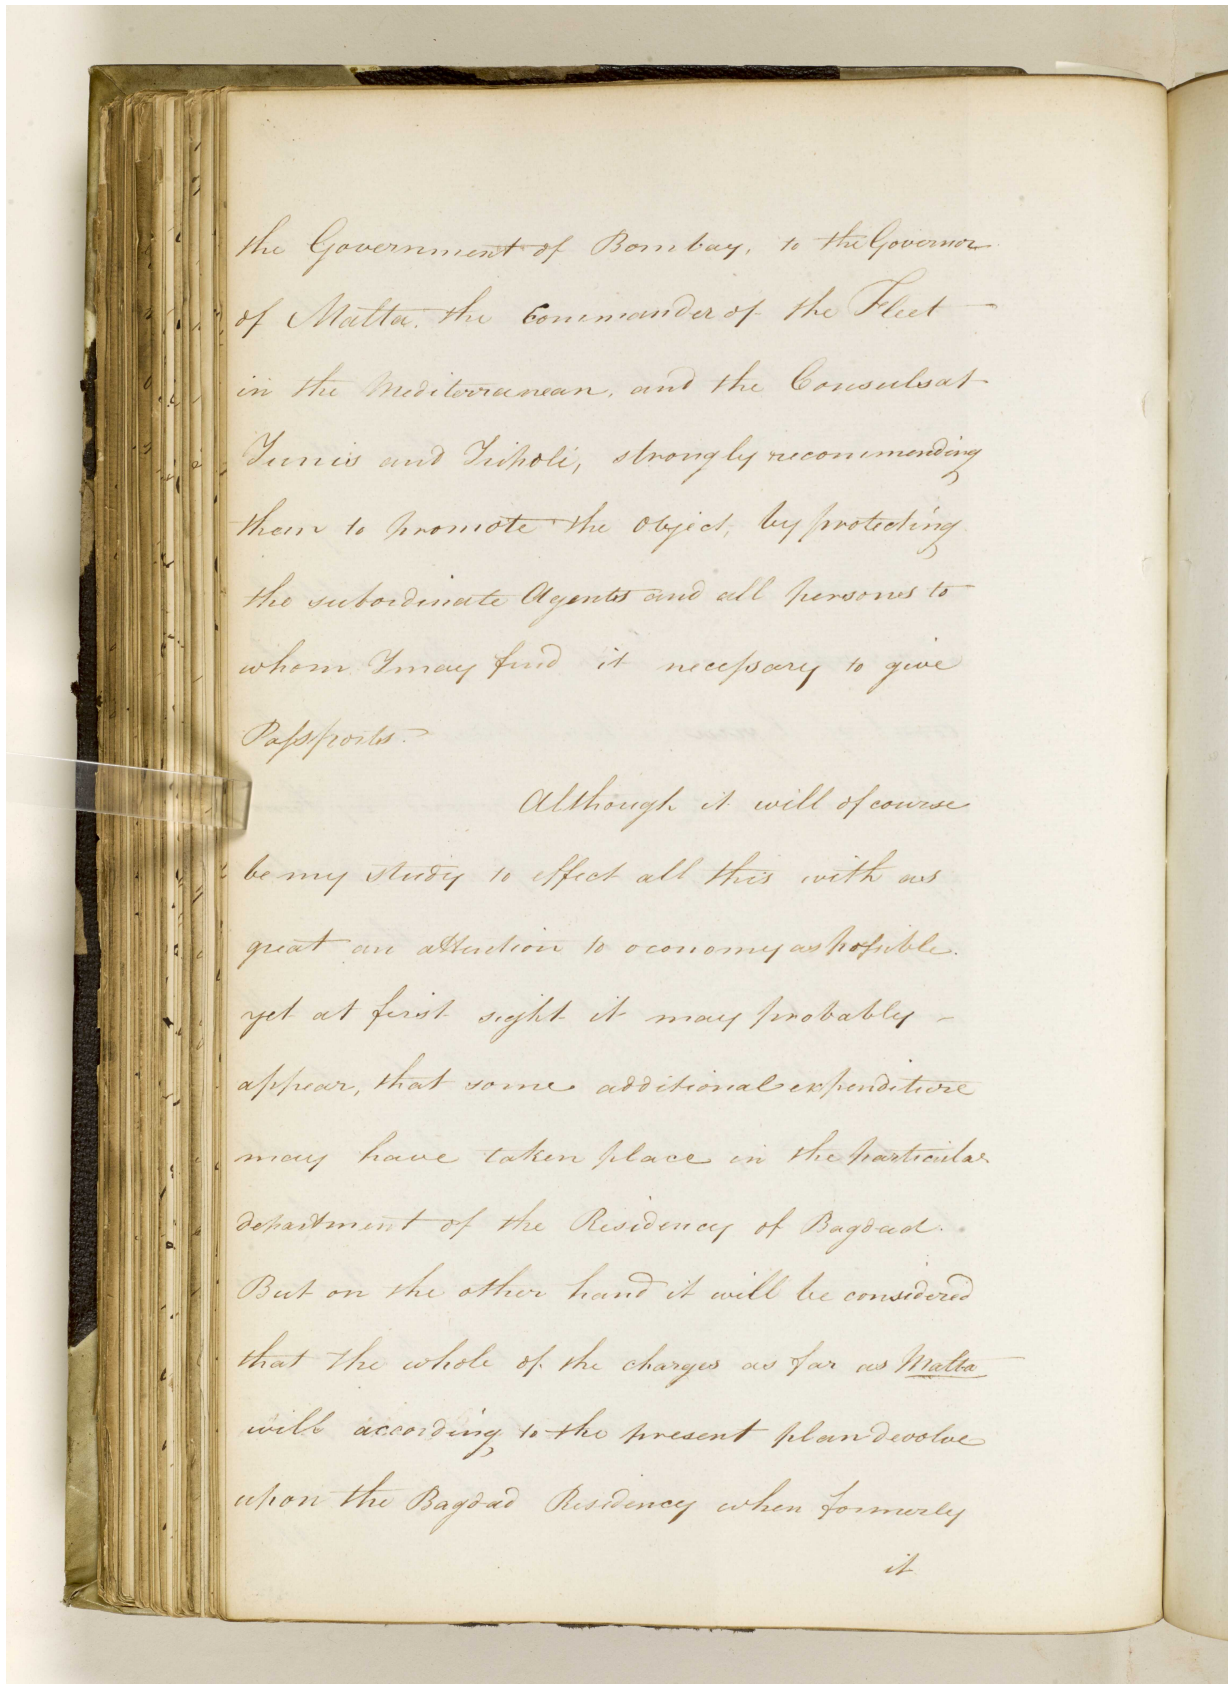 the Government of Bombay, to the Governor
of Malta. the Commander of the Fleet
in the Mediterranean, and the Consuls at
Tunis and Tripoli, strongly recommending
them to promote the object, by protecting
the subordinate Agents and all persons to
whom I may find it necessary to give
Passports.
Although it will of course
be my study to effect all this with as
great an attention to oconomy as possible.
yet at first sight it may probably
appear, that some additional expenditure
may have taken place in the particular
department of the Residency of Bagdad.
But on the other hand it will be considered
that the whole of the charges as far as Malta
will according to the present plan devolve
upon the Bagdad Residency when formerly
it